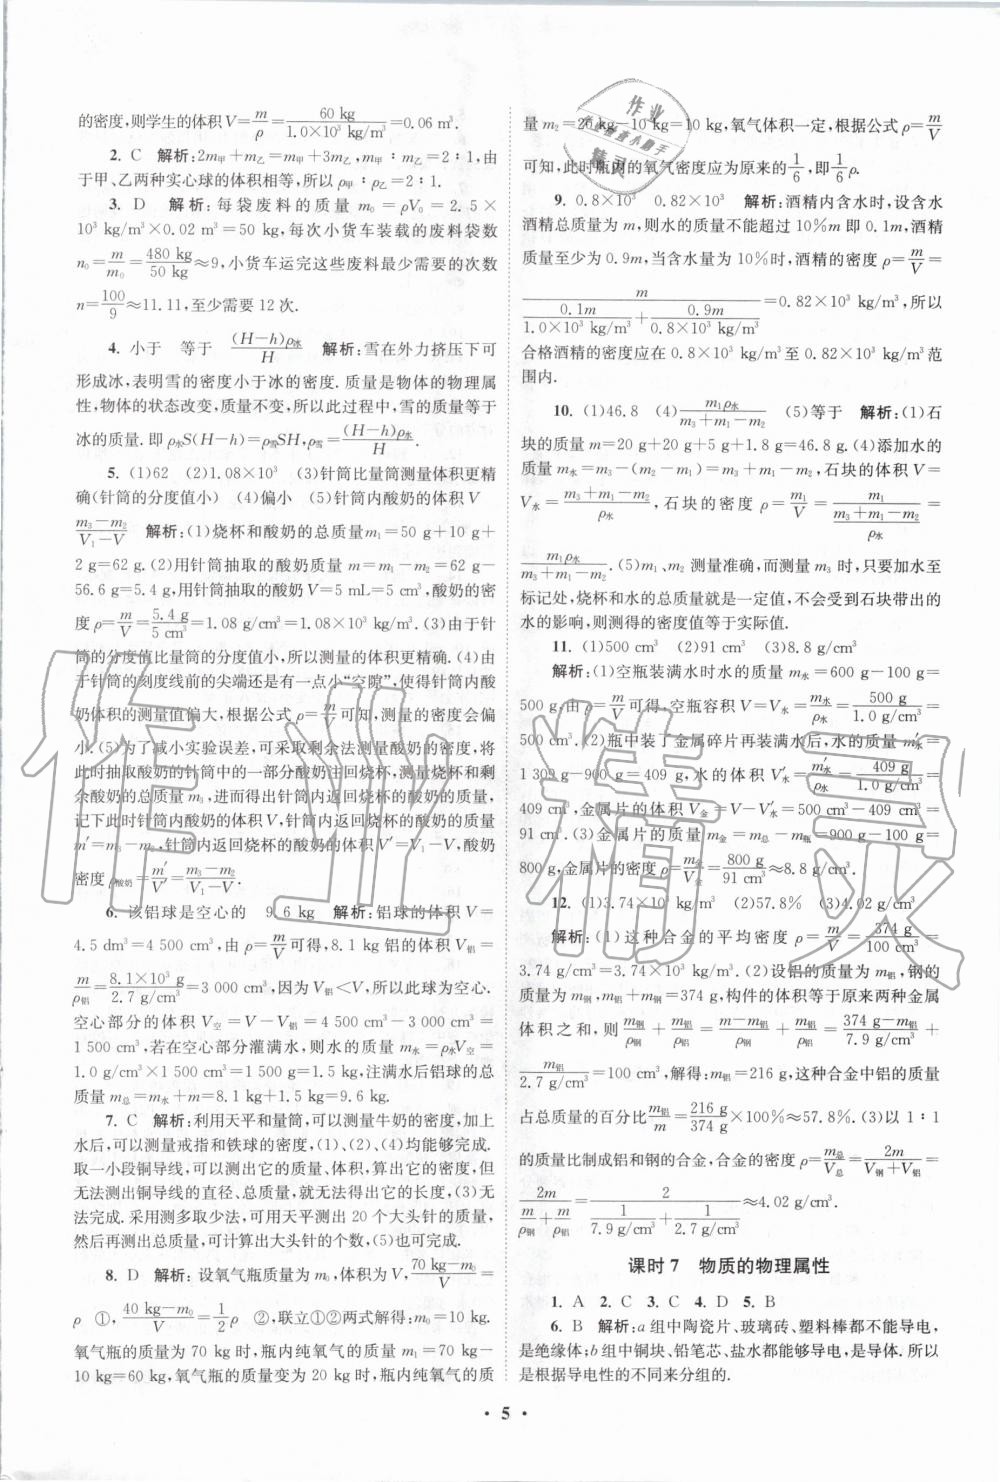 的密度,则学生的体积V=m/ρ=60 kg/1.0×10³ kg/m³=0.06 m³.
2. C 解析:2m甲+m乙=m甲+3m乙,m甲∶m乙=2∶1,由
于甲、乙两种实心球的体积相等,所以ρ甲∶ρ乙=2∶1.
3. D 解析:每袋废料的质量 m₀=ρV₀=2.5×
10³ kg/m³×0.02 m³=50 kg,每次小货车装载的废料袋数
n₀=m/m₀=480 kg/50 kg≈9,小货车运完这些废料最少需要的次数
n=100/9≈11.11,至少需要 12 次.
4. 小于 等于 (H-h)ρ冰/H 解析:雪在外力挤压下可
形成冰,表明雪的密度小于冰的密度. 质量是物体的物理属
性,物体的状态改变,质量不变,所以此过程中,雪的质量等于
冰的质量. 即 ρ冰S(H-h)=ρ雪SH,ρ雪=(H-h)ρ冰/H.
5. (1)62 (2)1.08×10³ (3)针筒比量筒测量体积更精
确(针筒的分度值小) (4)偏小 (5)针筒内酸奶的体积 V
m₃-m₂/V₁-V 解析:(1)烧杯和酸奶的总质量m₁=50 g+10 g+
2 g=62 g. (2)用针筒抽取的酸奶质量 m=m₁-m₂=62 g-
56.6 g=5.4 g,用针筒抽取的酸奶V=5 mL=5 cm³,酸奶的密
度ρ=m/V=5.4 g/5 cm³=1.08 g/cm³=1.08×10³ kg/m³. (3)由于针
筒的分度值比量筒的分度值小,所以测量的体积更精确. (4)由
于针筒的刻度线前的尖端还是有一点小“空隙”,使得针筒内酸
奶体积的测量值偏大,根据公式 ρ=m/V可知,测量的密度会偏
小. (5)为了减小实验误差,可采取剩余法测量酸奶的密度,将
此时抽取酸奶的针筒中的一部分酸奶注回烧杯,测量烧杯和剩
余酸奶的总质量 m₃,进而得出针筒内返回烧杯的酸奶的质量,
记下此时针筒内酸奶的体积V,针筒内返回烧杯的酸奶的质量
m′=m₃-m₂,针筒内返回烧杯的酸奶的体积V′=V₁-V,酸奶
密度ρ酸奶=m′/V′=m₃-m₂/V₁-V.
6. 该铝球是空心的 9.6 kg 解析:铝球的体积 V=
4.5 dm³=4 500 cm³,由 ρ=m/V可得,8.1 kg 铝的体积 V铝=
m/ρ铝=8.1×10³ g/2.7 g/cm³=3 000 cm³,因为 V铝<V,所以此球为空心.
空心部分的体积 V空=V-V铝=4 500 cm³-3 000 cm³=
1 500 cm³,若在空心部分灌满水,则水的质量 m水=ρ水V空=
1.0 g/cm³×1 500 cm³=1 500 g=1.5 kg,注满水后铝球的总
质量 m总=m水+m=8.1 kg+1.5 kg=9.6 kg.
7. C 解析:利用天平和量筒,可以测量牛奶的密度,加上
水后,可以测量戒指和铁球的密度,(1)、(2)、(4)均能够完成.
取一小段铜导线,可以测出它的质量、体积,算出它的密度,但
无法测出铜导线的直径、总质量,就无法得出它的长度,(3)无
法完成. 采用测多取少法,可用天平测出 20 个大头针的质量,
然后再测出总质量,可计算出大头针的个数,(5)也可完成.
8. D 解析:设氧气瓶质量为m₀,体积为 V,70 kg-m₀/V=
ρ ①,40 kg-m₀/V=1/2ρ ②,联立①②两式解得:m₀=10 kg.
氧气瓶的质量为 70 kg 时,瓶内纯氧气的质量 m₁=70 kg-
10 kg=60 kg,氧气瓶的质量变为 20 kg 时,瓶内纯氧气的质
量 m₂=20 kg-10 kg=10 kg,氧气体积一定,根据公式 ρ=m/V
可知,此时瓶内的氧气密度应为原来的1/6,即1/6ρ.
9. 0.8×10³ 0.82×10³ 解析:酒精内含水时,设含水
酒精总质量为 m,则水的质量不能超过 10% 即 0.1m,酒精
质量至少为 0.9m,当含水量为 10%时,酒精的密度 ρ=m/V=
m/(0.1m/1.0×10³ kg/m³+0.9m/0.8×10³ kg/m³)=0.82×10³ kg/m³,所以
合格酒精的密度应在 0.8×10³ kg/m³ 至 0.82×10³ kg/m³ 范
围内.
10. (1)46.8 (4)m₁ρ水/m₃+m₁-m₂ (5)等于 解析:(1)石
块的质量 m=20 g+20 g+5 g+1.8 g=46.8 g. (4)添加水的
质量 m水=m₃-(m₂-m₁)=m₃+m₁-m₂,石块的体积 V=
V水=m₃+m₁-m₂/ρ水,石块的密度 ρ=m₁/V=m₁/(m₃+m₁-m₂/ρ水)=
m₁ρ水/m₃+m₁-m₂. (5)m₁、m₂ 测量准确,而测量 m₃ 时,只要加水至
标记处,烧杯和水的总质量就是一定值,不会受到石块带出的
水的影响,则测得的密度值等于实际值.
11. (1)500 cm³ (2)91 cm³ (3)8.8 g/cm³
解析:(1)空瓶装满水时水的质量 m水=600 g-100 g=
500 g,由 ρ=m/V可得,空瓶容积 V=V水=m水/ρ水=500 g/1.0 g/cm³=
500 cm³. (2)瓶中装了金属碎片再装满水后,水的质量 m′水=
1 309 g-900 g=409 g,水的体积 V′水=m′水/ρ水=409 g/1.0 g/cm³=
409 cm³,金属片的体积 V金=V-V′水=500 cm³-409 cm³=
91 cm³. (3)金属片的质量 m金=m总-m瓶=900 g-100 g=
800 g,金属片的密度 ρ=m金/V金=800 g/91 cm³≈8.8 g/cm³.
12. (1)3.74×10³ kg/m³ (2)57.8% (3)4.02 g/cm³
解析:(1)这种合金的平均密度 ρ=m/V=374 g/100 cm³=
3.74 g/cm³=3.74×10³ kg/m³. (2)设铝的质量为 m铝,钢的
质量为 m钢,m铝+m钢=374 g,构件的体积等于原来两种金属
体积之和,则 m钢/ρ钢+m铝/ρ铝=m-m铝/ρ钢+m铝/ρ铝=374 g-m铝/7.9 g/cm³+
m铝/2.7 g/cm³=100 cm³,解得:m铝=216 g,这种合金中铝的质量
占总质量的百分比m铝/m=216 g/374 g×100%≈57.8%. (3)以 1∶1
的质量比制成铝和钢的合金,合金的密度 ρ=m总/V总=2m/V钢+V铝=
2m/(m/ρ钢+m/ρ铝)=2/(1/7.9 g/cm³+1/2.7 g/cm³)≈4.02 g/cm³.
课时 7 物质的物理属性
1. A 2. C 3. C 4. D 5. B
6. B 解析:a 组中陶瓷片、玻璃砖、塑料棒都不能导电,
是绝缘体;b 组中铜块、铅笔芯、盐水都能够导电,是导体. 所以
是根据导电性的不同来分组的.
• 5 •
作业精灵
作业
精灵